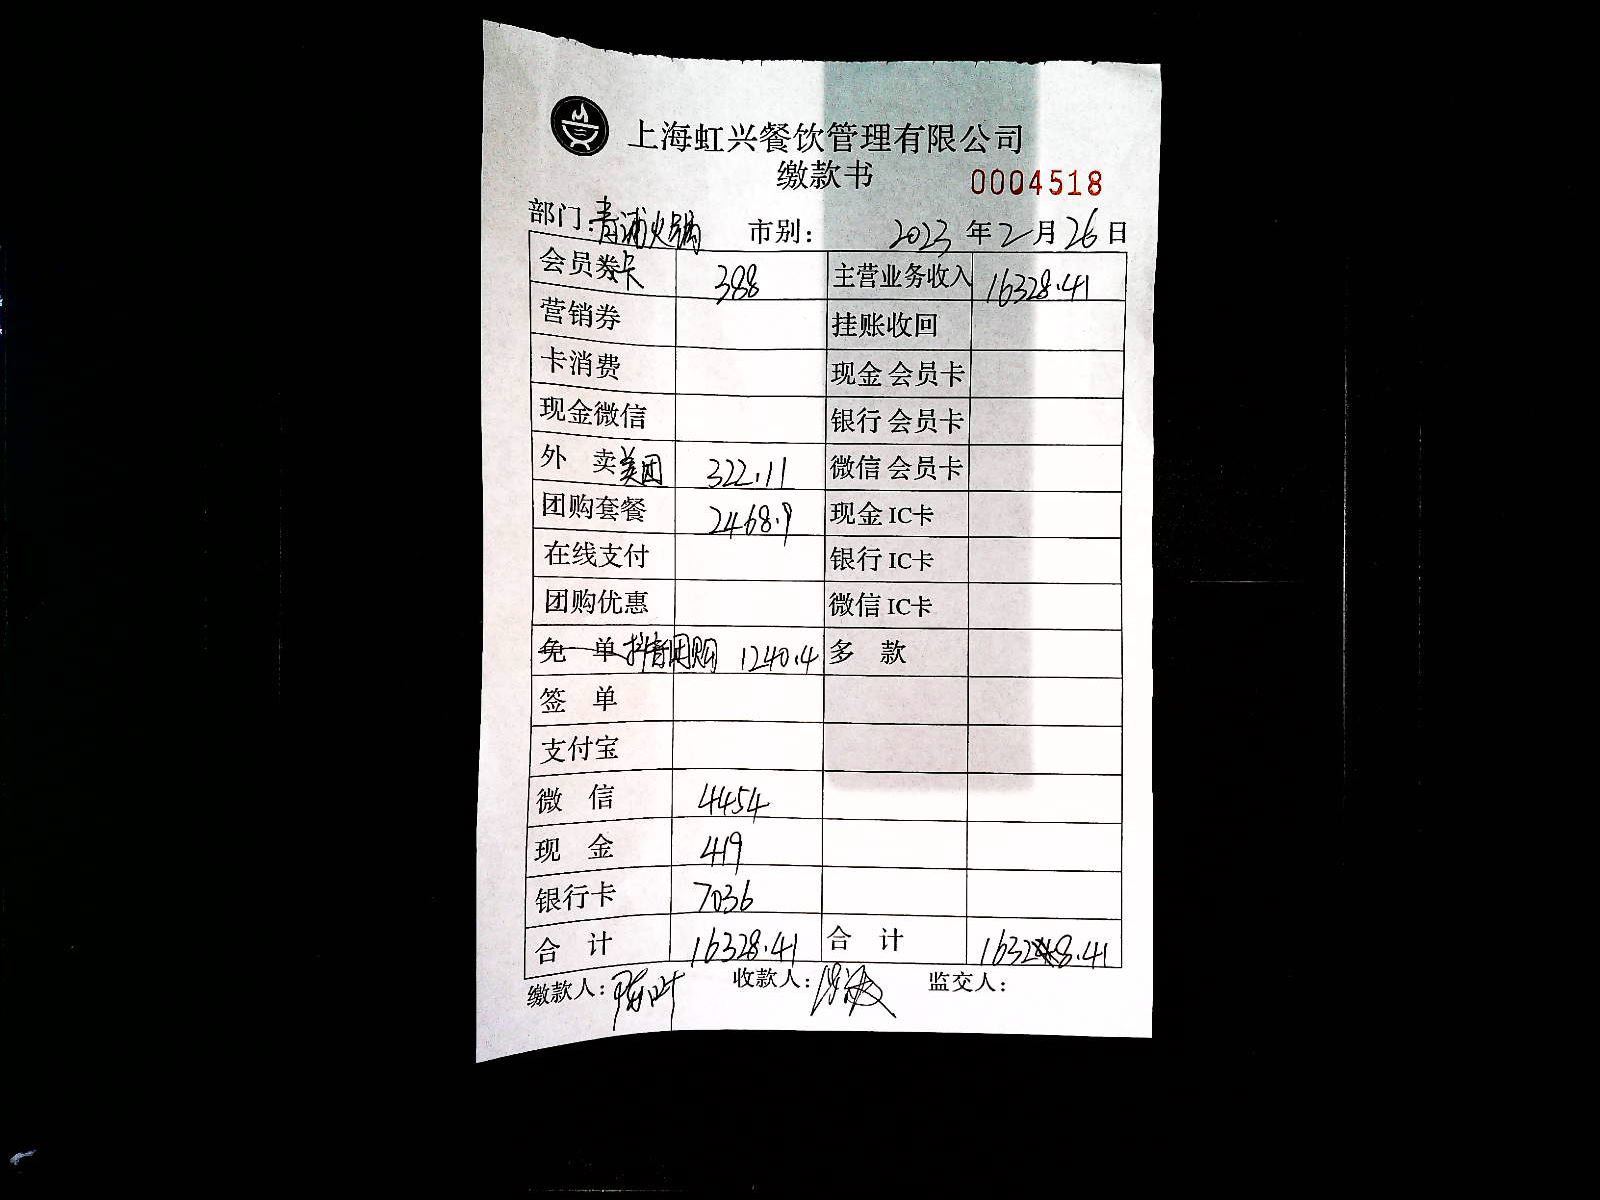 上海虹兴餐饮管理有限公司
缴款书 0004518
部门:青浦火锅 市别: 2023 年 2 月 26 日
会员券卡 388 主营业务收入 16328.41
营销券 挂账收回
卡消费 现金 会员卡
现金微信 银行 会员卡
外 卖美团 322.11 微信 会员卡
团购套餐 2468.9 现金 IC卡
在线支付 银行 IC卡
团购优惠 微信 IC卡
免 单 抖音团购 1240.4 多 款
签 单
支付宝
微 信 4454
现 金 419
银行卡 7036
合 计 16328.41 合 计 16328.41
缴款人: 收款人: 监交人: